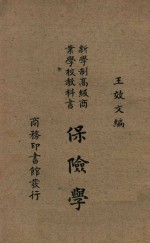 王效文編
新學制高級商
業學校敎科書
保險學
商務印書館發行